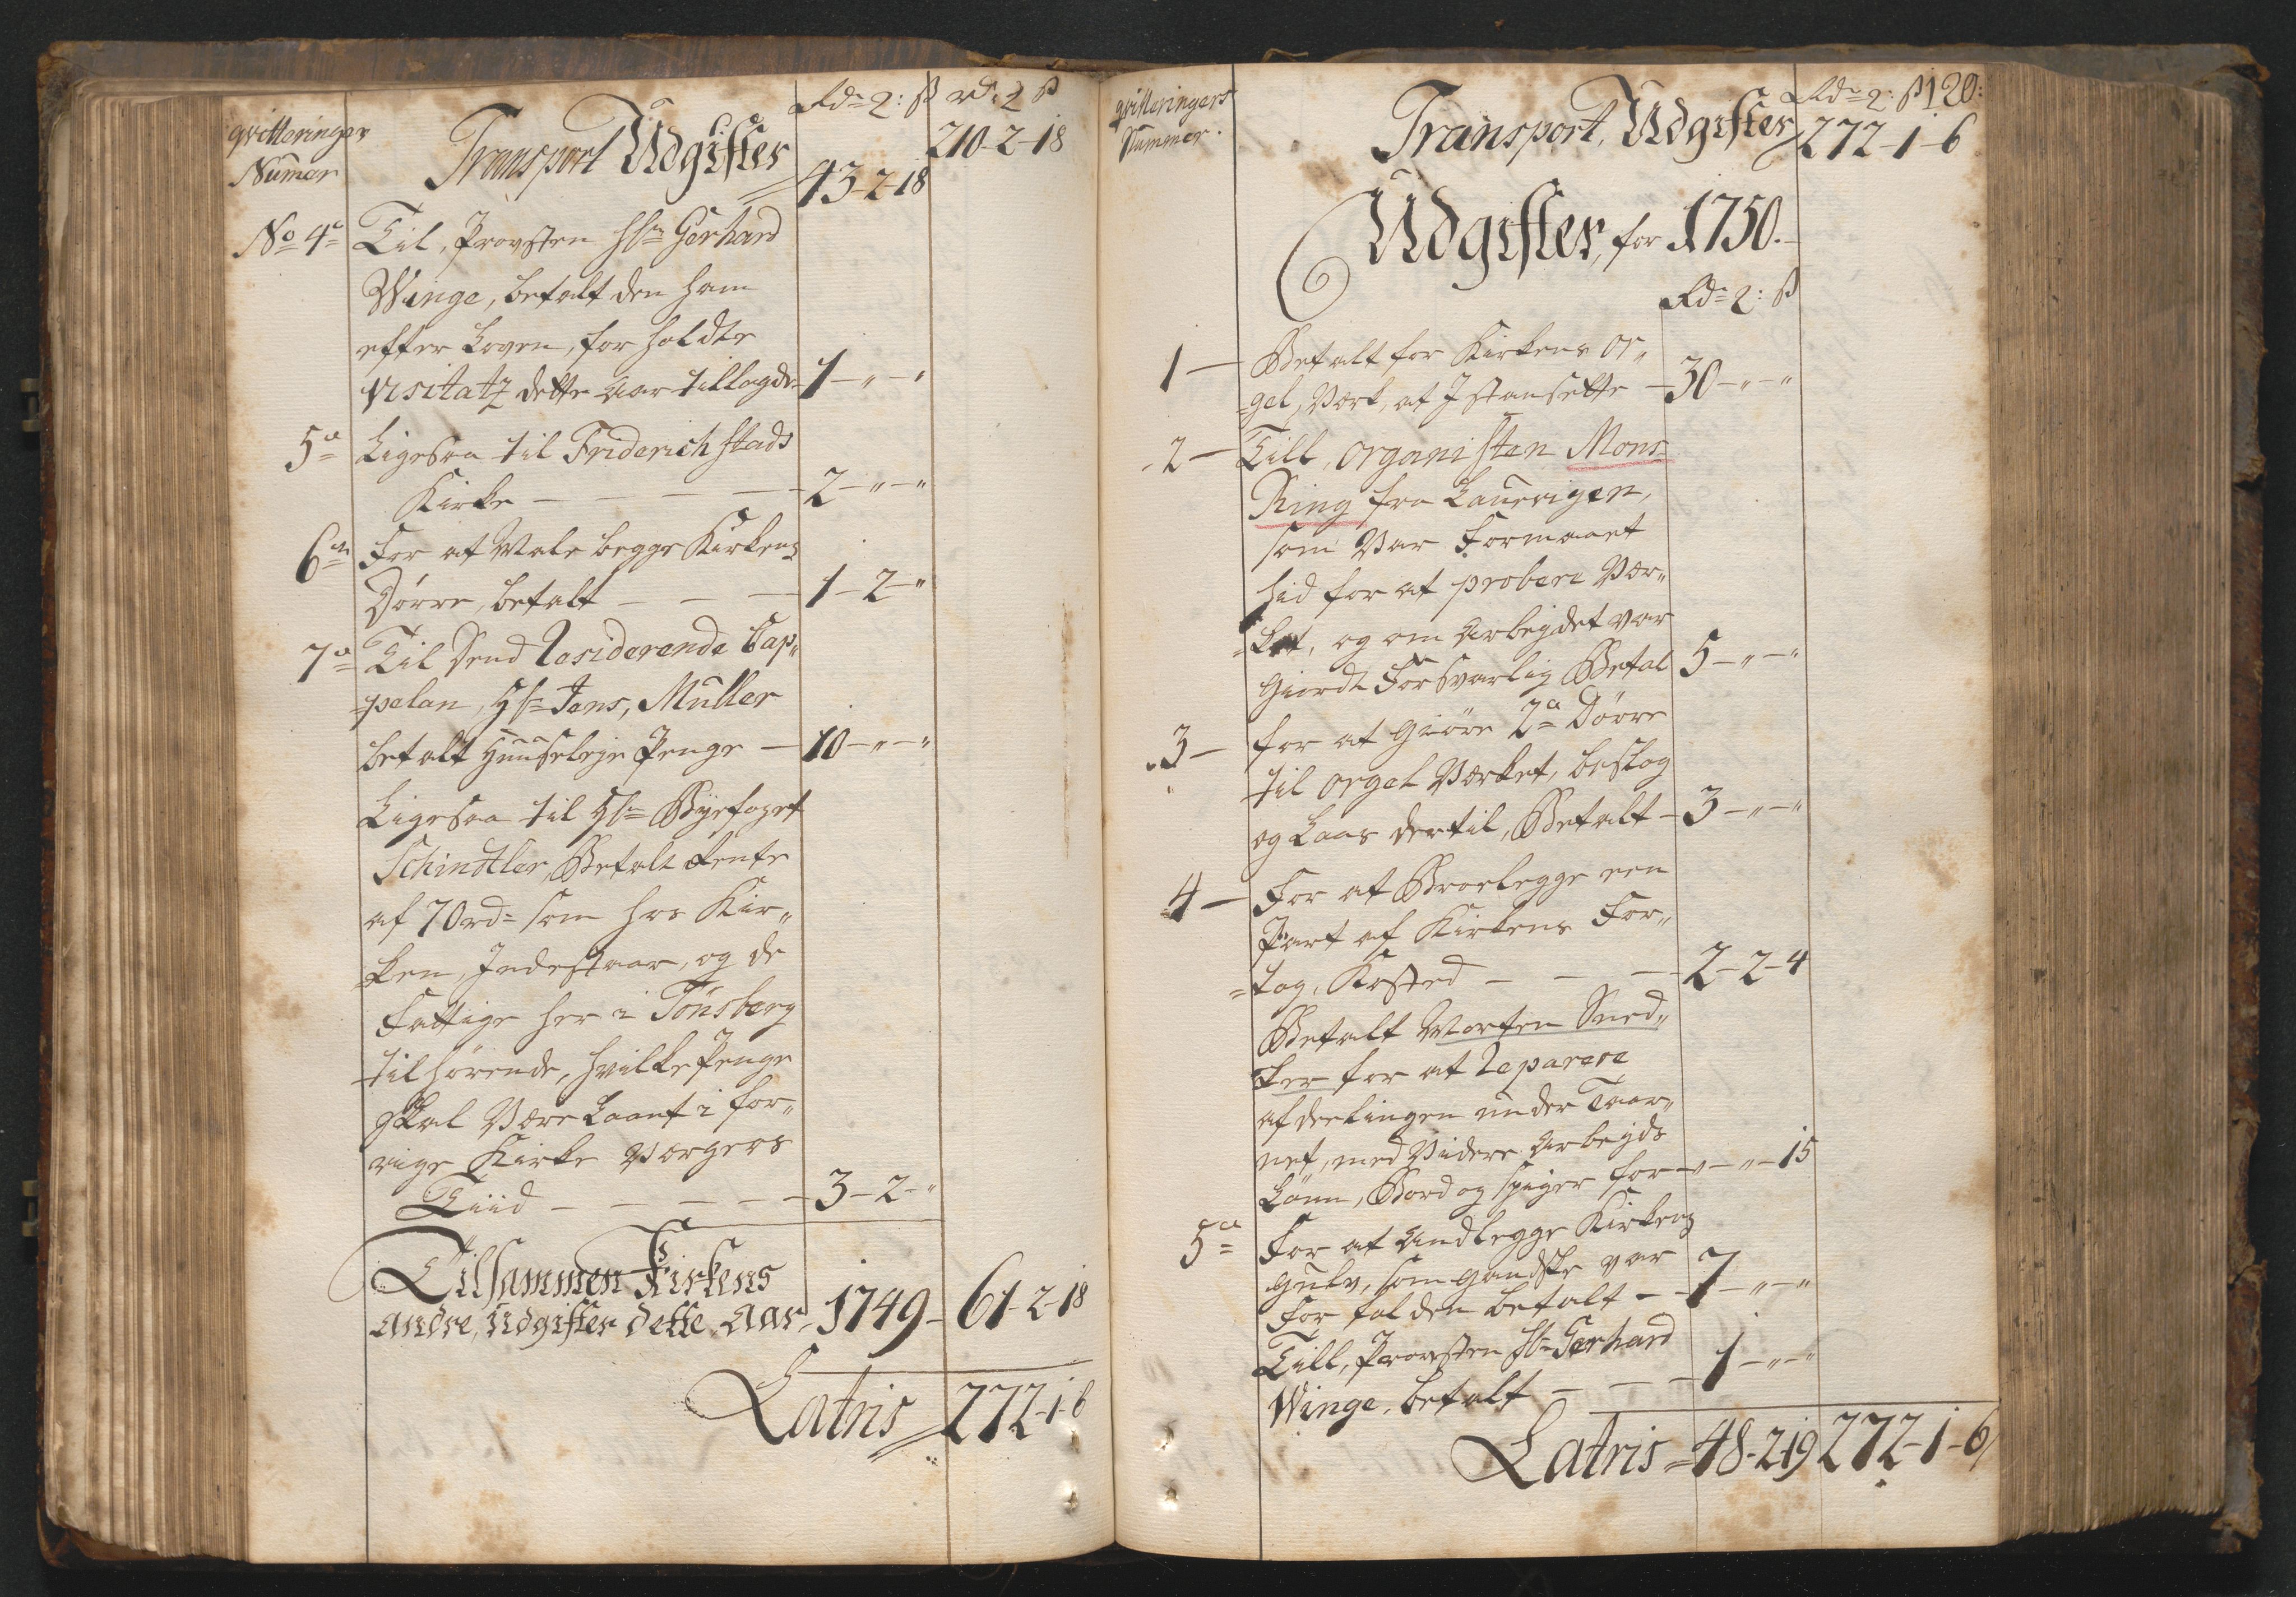 qvitteringer
Numer
Transport Udgifter
Rdr 2: ß
rdr 2 ß
210-2-18
43-2-18
No 4a Til, Provsten Hr Gerhard
Winge, betalt den ham
efter Loven, for holdte
visitatz dette aar tillagde 1-"-"
5a Ligesaa til Friderichstads
Kirke - - - - 2-"-"
6a For at Male begge Kirkens
Dörre, betalt - - - 1-2-"
7a Til Dend Residerende Cap„
pelan, Hr Jens, Müller
betalt Huusleje Penge - 10-"-"
Ligesaa til Hr Byefoget
Schindtler, Betalt Rente
af 70rdr som hos Kir„
ken, Indestaar, og de
Fattige her i Tönsberg
tilhörende, hvilke Penge
skal være Laant i for„
rige Kirke Vergers
Tiid - - - - 3-2-"
Tilsammen Kirkens
Andre, Udgifter dette Aar 1749- 61-2-18
Latris 272-1-6
qvitteringers
Nummer.
Transport, Udgifter
Rdr 2: ß 120:
272-1-6
Udgifter, for 1750.
Rdr 2: ß
1 - Betalt for Kirkens Or„
gel, Verk, at Istansette - 30-"-"
2 - Till, organisten Mons
Ring fra Laurvigen,
som var Formaaet
hid for at probere Ver„
ket, og om Arbeydet var
Giordt Forsvarlig Betal 5-"-"
3 - for at giöre 2a Dörre
til orgel Verket, beslag
og Laas dertil, Betalt - 3-"-"
4 - For at Broelegge een
Part af Kirkens For„
tog, Kosted - - - 2-2-4
Betalt Morten Sned„
ker for at Reparere
afdeelingen under Taar„
net, med Videre Arbeyds
Lönn, Bord og Spiger for -"-"-15
5a For at Andlegge Kirkens
gulv, som gandske var
forfalden betalt - - 7-"-"
Till, Provsten Hr Gerhard
Winge, betalt - - - 1-"-"
Latris 48-2-19 272-1-6